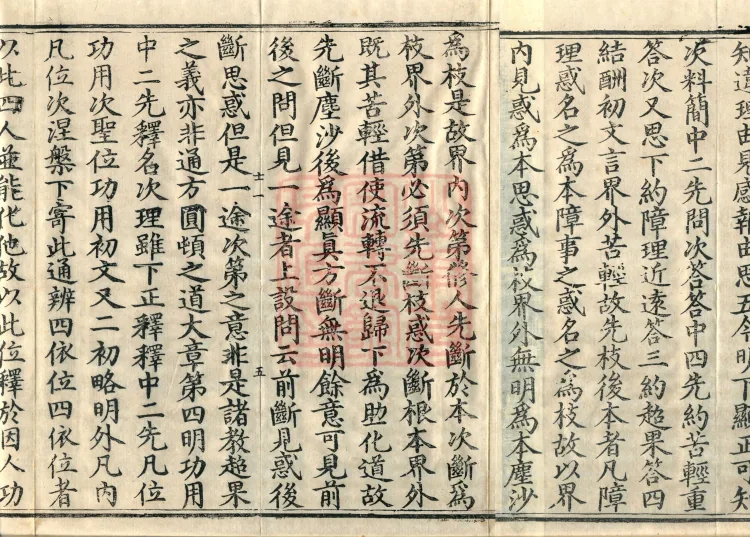 知道理由是感報由思五今明下顯正可知
次料簡中二先問次答答中四先約苦輕重
答次又思下約障理近遠答三約超果答四
結酬初文言界外苦輕故先枝後本者凡障
理惑名之為本障事之惑名之為枝故以界
內見惑為本思惑為枝界外無明為本塵沙
為枝是故界內次第斷人先斷於本次斷為
枝界外次第必須先斷枝惑次斷根本界外
既其苦輕借使流轉不退歸下為助化道故
先斷塵沙後為顯真方斷無明餘意可見前
後之問但見一途者上設問云前斷見惑後
士一
五
斷思惑但是一途次第之意非是諸教超果
之義亦非通方圓頓之道大章第四明功用
中二先釋名次理雖下正釋釋中二先凡位
功用次聖位功用初文又二初略明外凡內
凡位次涅槃下寄此通辨四依位四依位者
以此四人並能化他故以此位釋於因人功